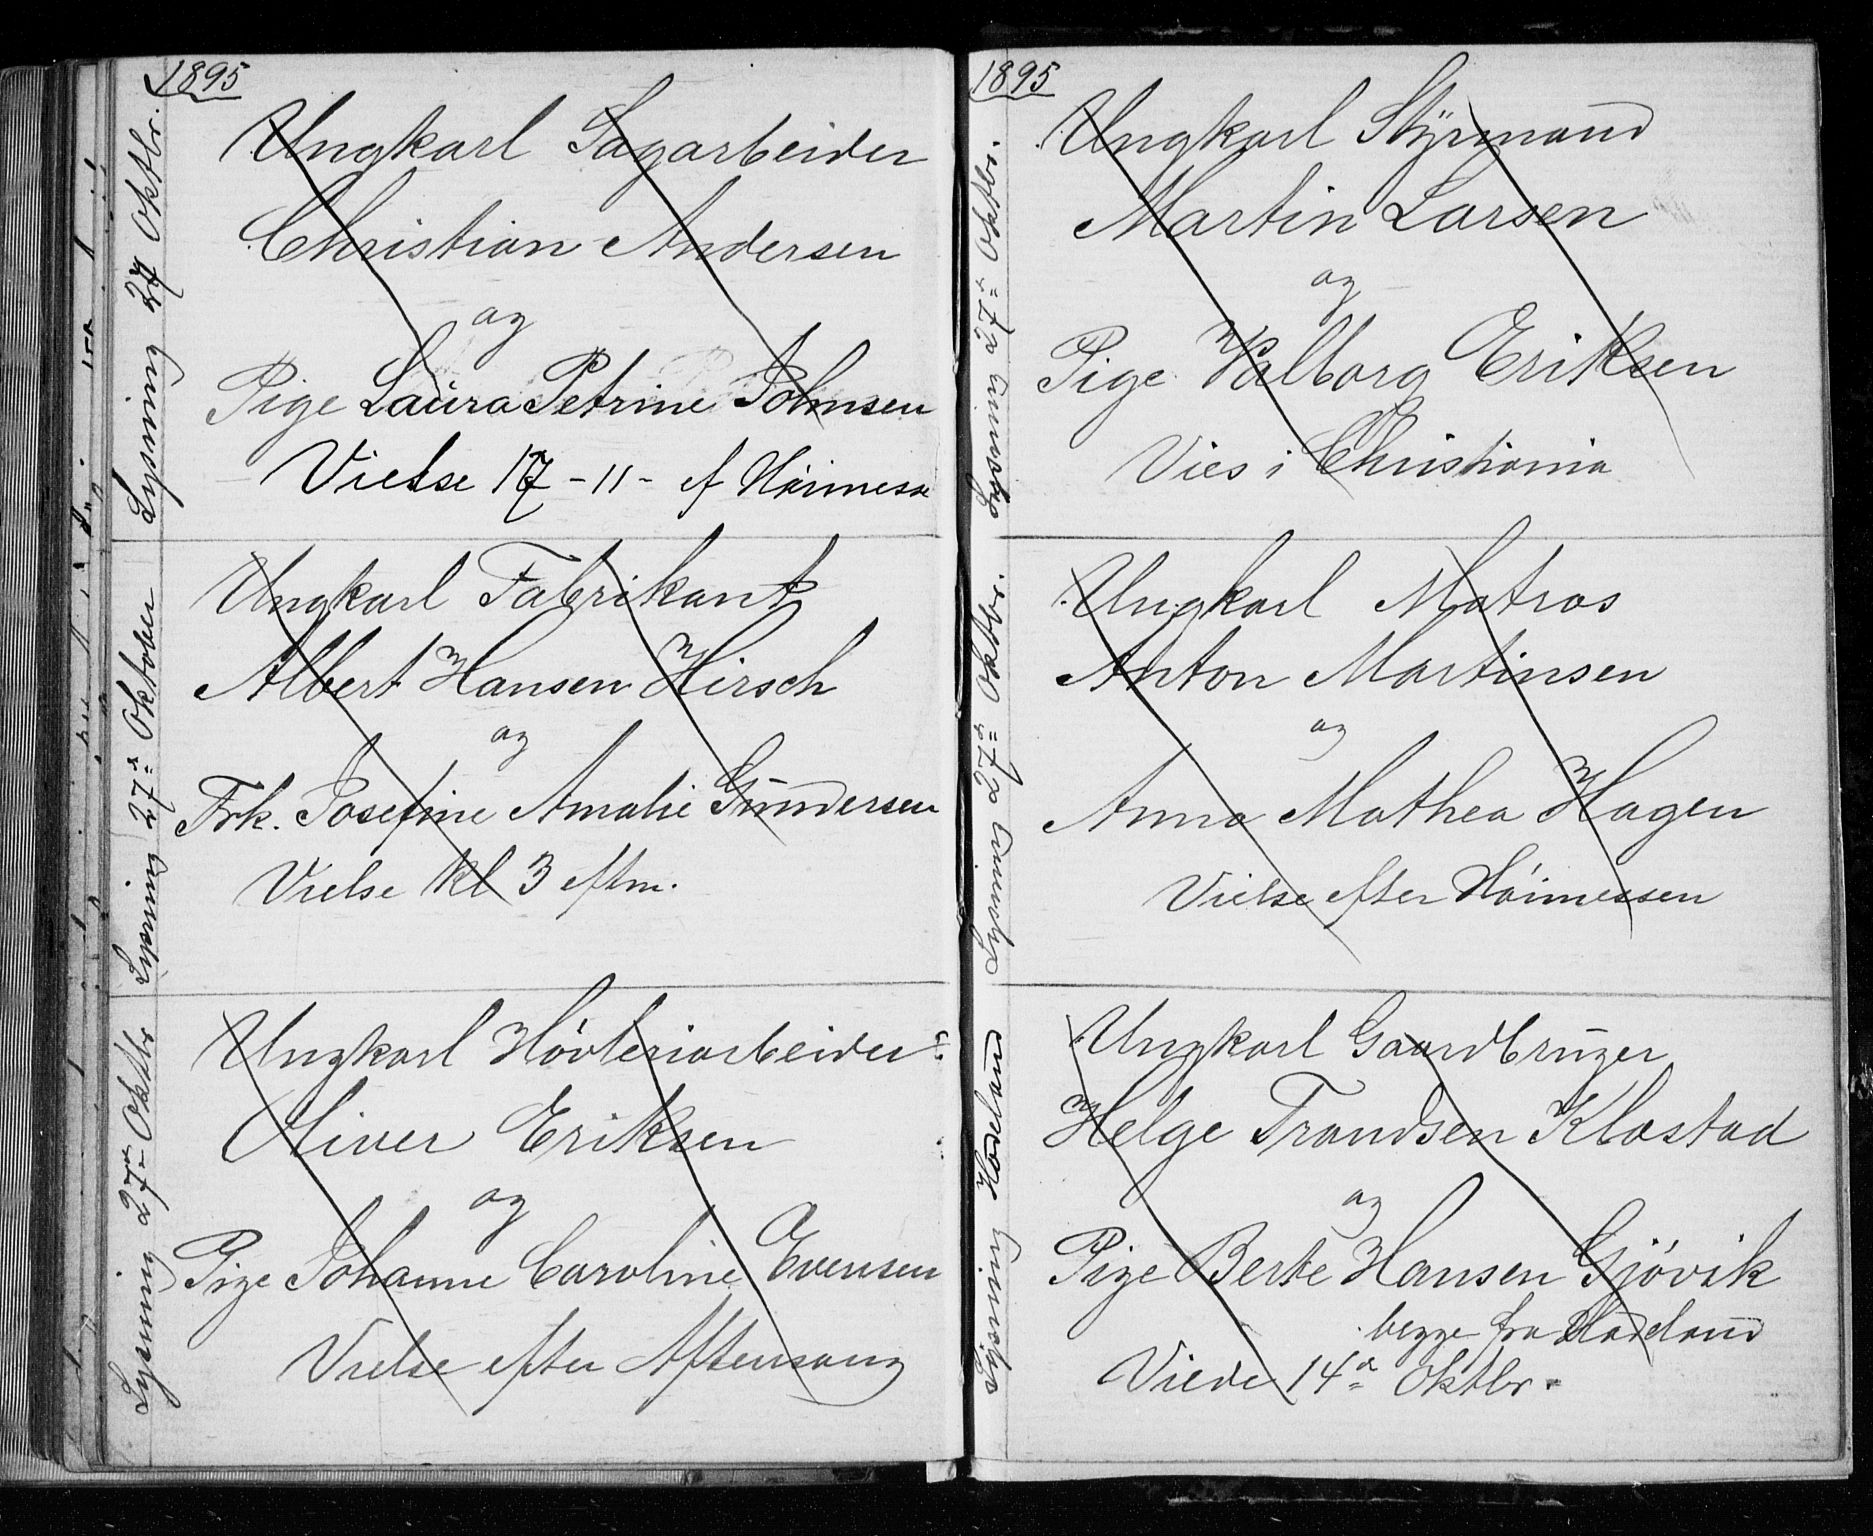 1895
Lysning 27 Oktbr.
Ungkarl Sagarbeider
Christian Andersen
og
Pige Laura Petrine Johnsen
Vielse 17-11- ef Höimesse
Lysning 27d Oktober
Ungkarl Fabrikant
Albert Hansen Hirsch
og
Frk. Josefine Amalie Gundersen
Vielse kl 3 eftm.
Lysning 27de Oktbr
Ungkarl Hövleriarbeider
Oliver Eriksen
og
Pige Johanne Caroline Evensen
Vielse efter Aftensang
1895
Lysning 27d Oktbr.
Ungkarl Styrmand
Martin Larsen
og
Pige Valborg Eriksen
Vies i Christiania
Lysning 27d Oktbr.
Ungkarl Matros
Anton Martinsen
og
Anna Mathea Hagen
Vielse efter Höimessen
Lysning Hadeland
Ungkarl Gaardbruger
Helge Trondsen Klastad
og
Pige Berte Hansen Gjövik
begge fra Hadeland
Viede 14d Oktbr.